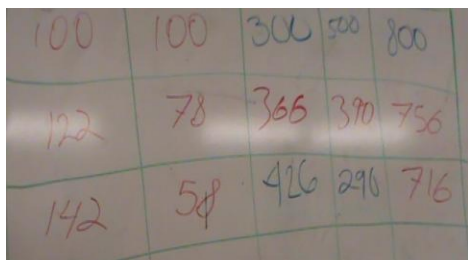 100 100 300 500 800
122 78 366 390 756
142 58 426 290 716